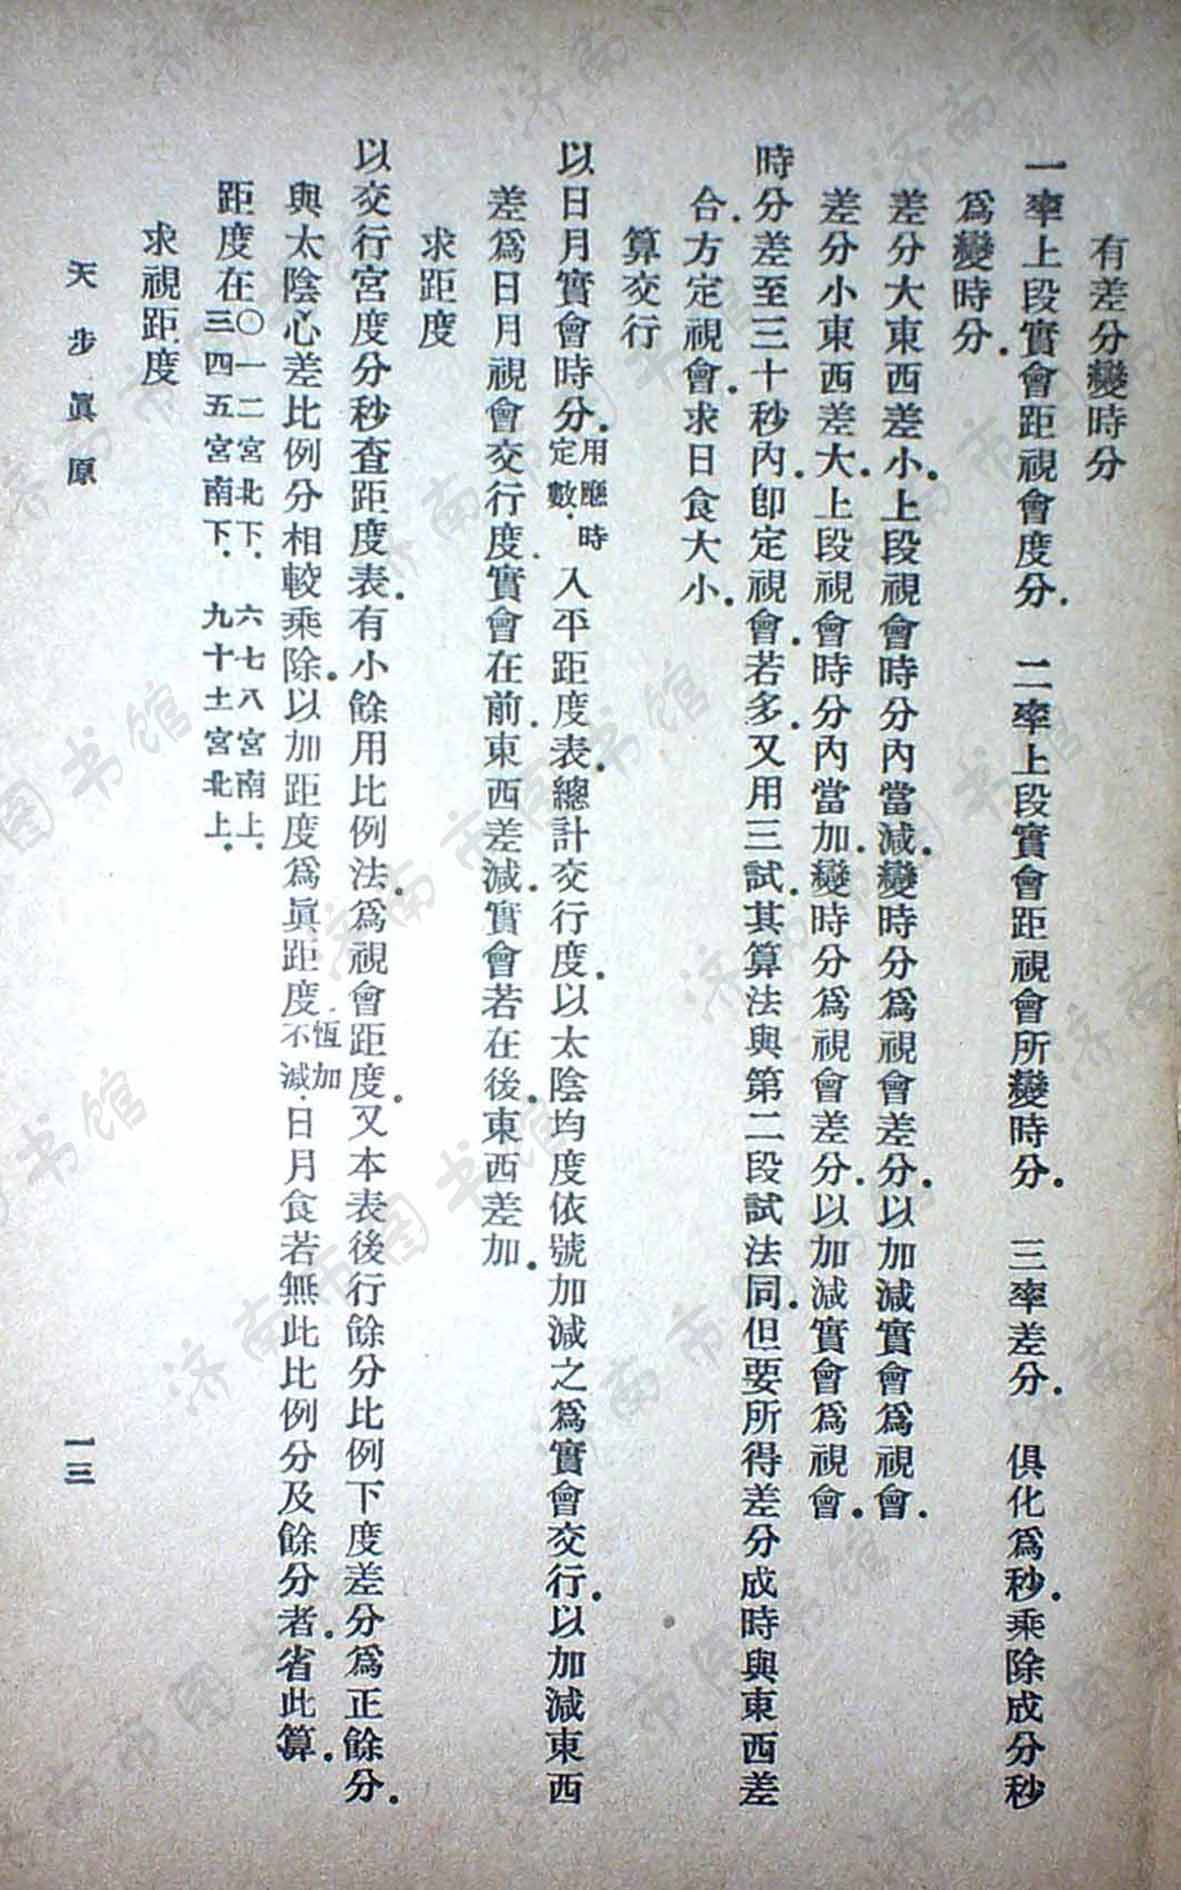 有差分變時分
一率上段實會距視會度分．　二率上段實會距視會所變時分．　三率差分．　俱化爲秒．乘除成分秒
爲變時分．
差分大東西差小．上段視會時分內當減．變時分爲視會差分．以加減實會爲視會．
差分小東西差大．上段視會時分內當加．變時分爲視會差分．以加減實會爲視會．
時分差至三十秒內．卽定視會．若多．又用三試．其算法與第二段試法同．但要所得差分成時與東西差
合．方定視會．求日食大小．
算交行
以日月實會時分．用應時定數．入平距度表．總計交行度．以太陰均度依號加減之爲實會交行．以加減東西
差爲日月視會交行度．實會在前．東西差減．實會若在後．東西差加．
求距度
以交行宮度分秒查距度表．有小餘用比例法．爲視會距度．又本表後行餘分比例下度差分爲正餘分．
與太陰心差比例分相較乘除．以加距度爲眞距度．恆加不減．日月食若無此比例分及餘分者．省此算．
距度在〇一二宮北下．三四五宮南下．六七八宮南上．九十土宮北上．
求視距度
天步眞原
一三
济南市图书馆